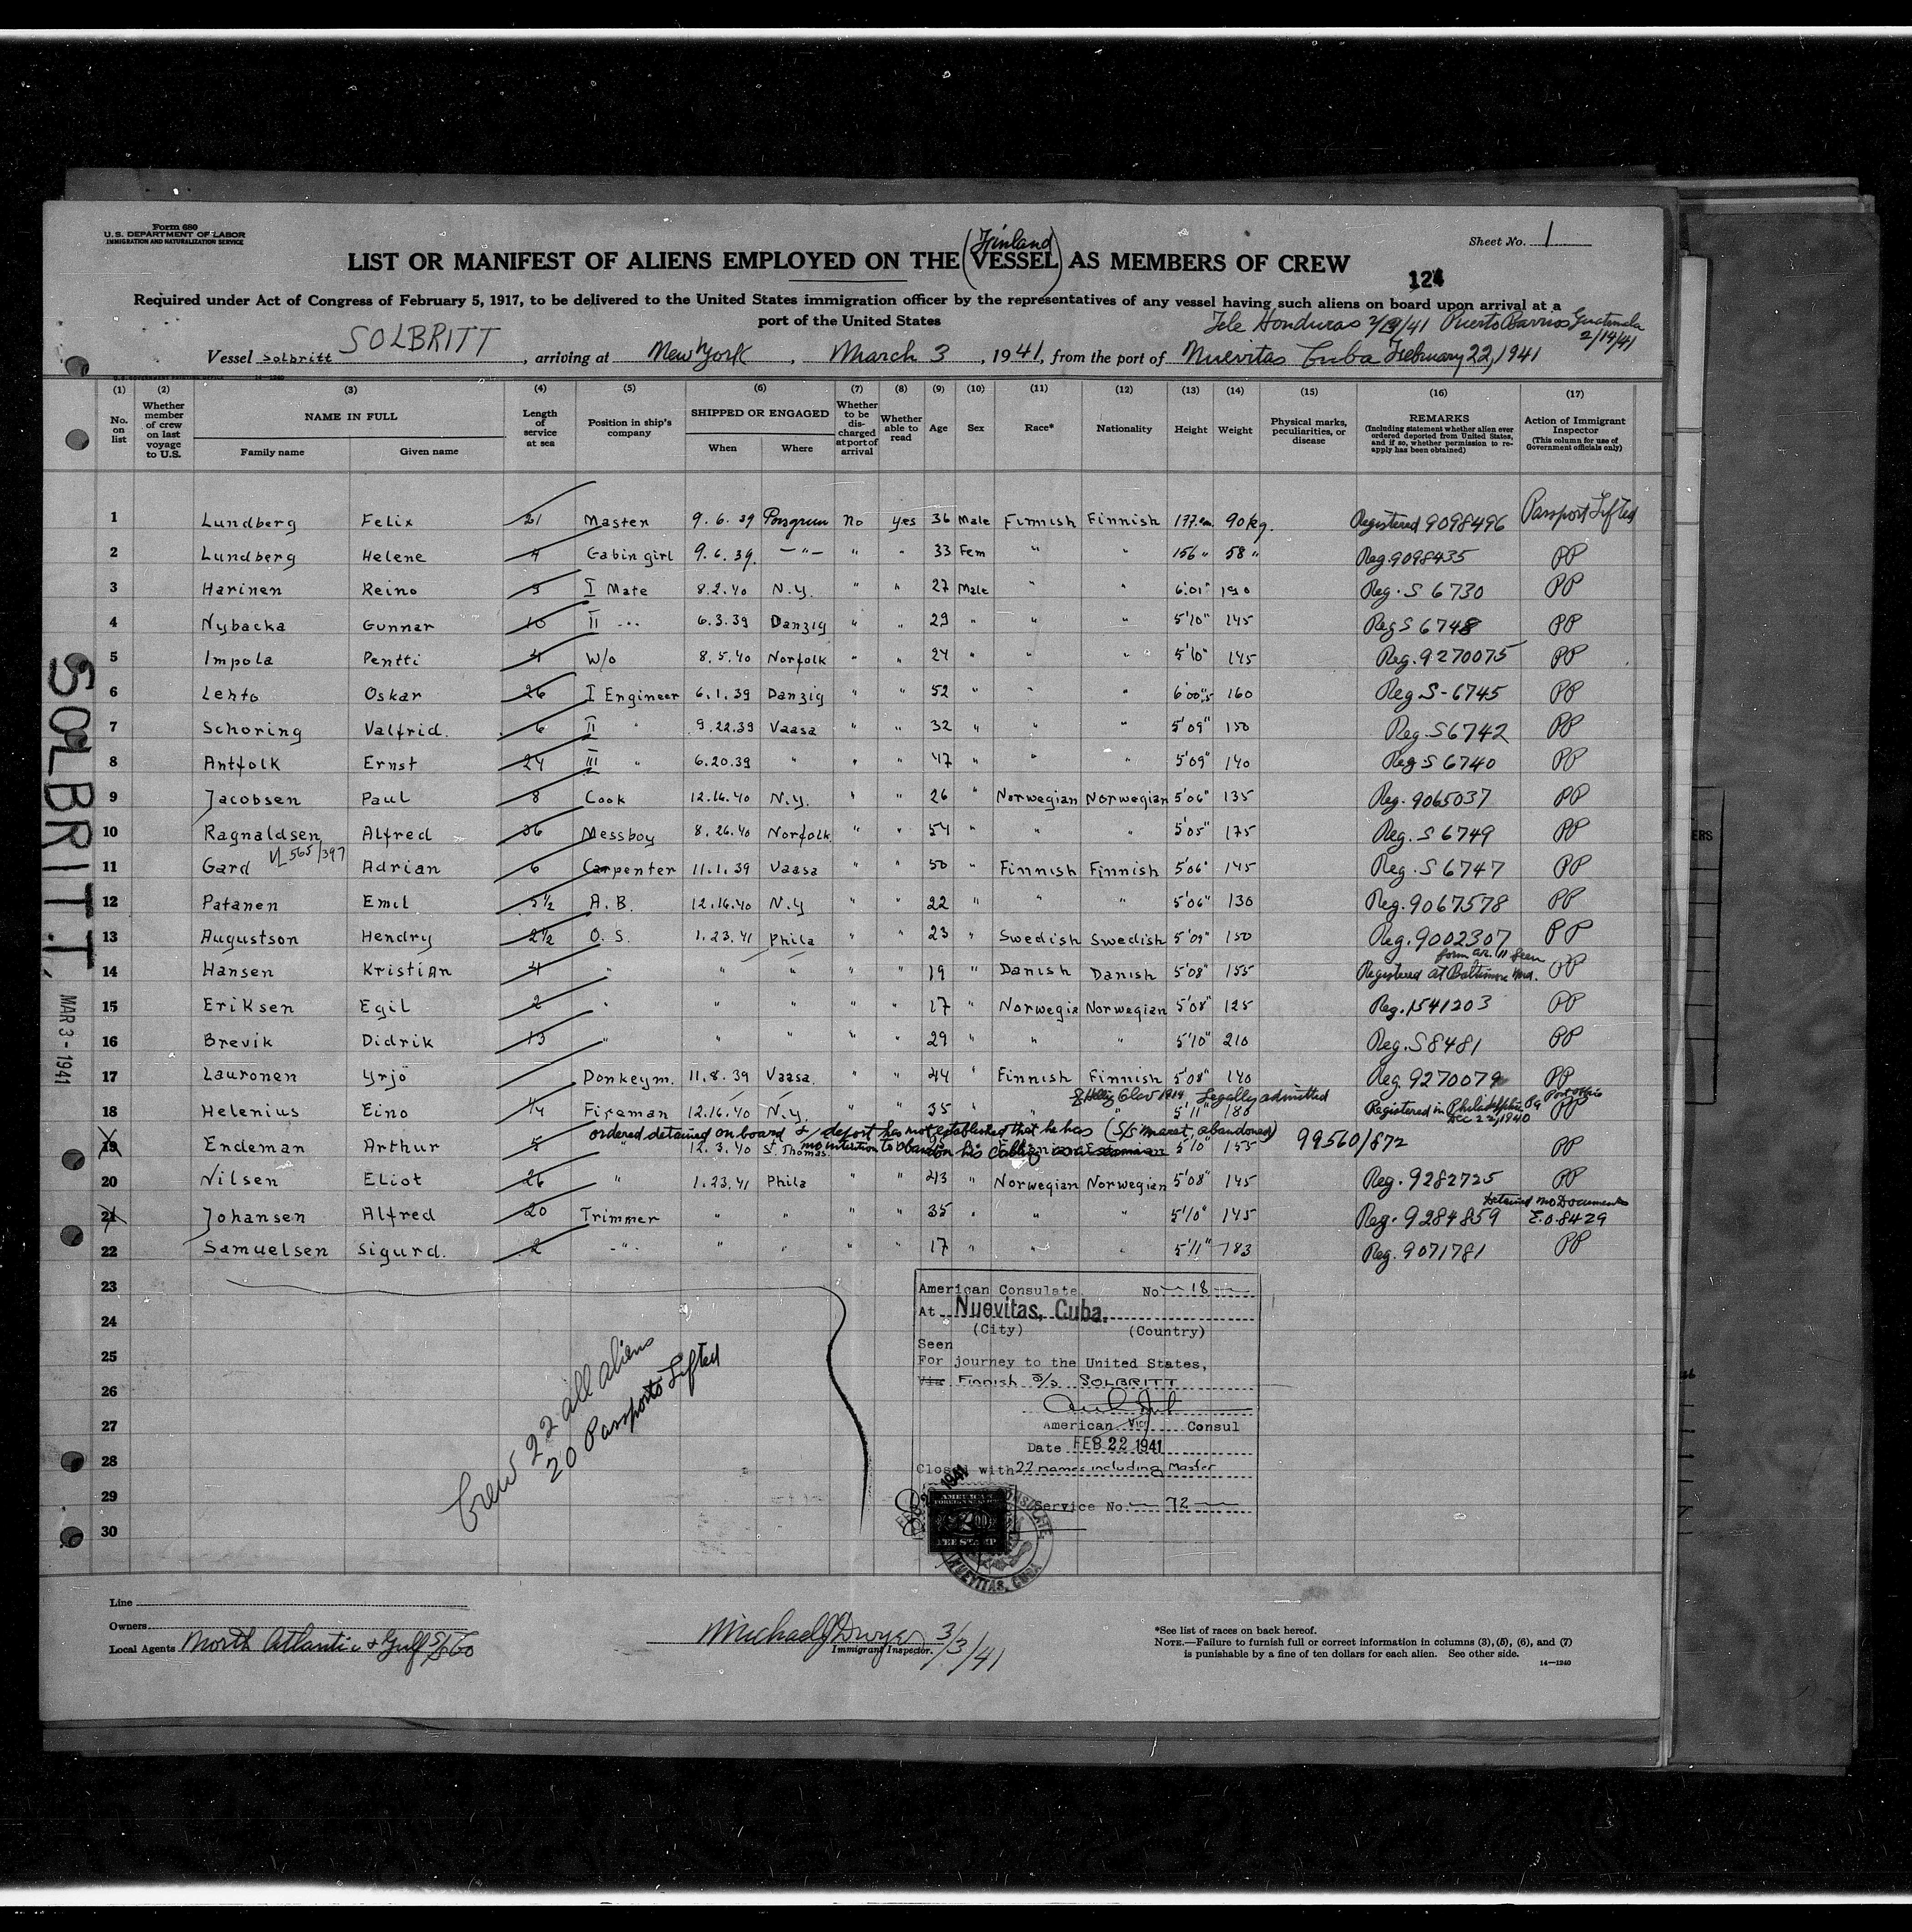 Form 680
U.S. DEPARTMENT OF LABOR
IMMIGRATION AND NATURALIZATION SERVICE
Sheet No. 1
(Finland)
LIST OR MANIFEST OF ALIENS EMPLOYED ON THE VESSEL AS MEMBERS OF CREW
124
Required under Act of Congress of February 5, 1917, to be delivered to the United States immigration officer by the representatives of any vessel having such aliens on board upon arrival at a
port of the United States
Tele Honduras 2/19/41 Puerto Barrios Guatemala
2/19/41
Vessel Solbritt SOLBRITT, arriving at New York, March 3, 1941, from the port of Nuevitas Cuba February 22, 1941
(1) (2) (3) (4) (5) (6) (7) (8) (9) (10) (11) (12) (13) (14) (15) (16) (17)
No. on list
Whether member of crew on last voyage to U.S.
NAME IN FULL
Family name Given name
Length of service at sea
Position in ship's company
SHIPPED OR ENGAGED
When Where
Whether to be discharged at port of arrival
Whether able to read
Age
Sex
Race*
Nationality
Height
Weight
Physical marks, peculiarities, or disease
REMARKS
(Including statement whether alien ever ordered deported from United States, and if so, whether permission to reapply has been obtained)
Action of Immigrant Inspector
(This column for use of Government officials only)
1 Lundberg Felix 21 Master 9.6.39 Porsgrun No yes 36 Male Finnish Finnish 177 cm. 90 kg. Registered 9098496 Passport Lifted
2 Lundberg Helene 4 Cabin girl 9.6.39. —"— " " 33 Fem " " 156 " 58 " Reg. 9098435 PP
3 Harinen Reino 5 I Mate 8.2.40 N.Y. " " 27 Male " " 6'01" 190 Reg. S 6730 PP
4 Nybacka Gunnar 10 II " 6.3.39 Danzig " " 29 " " " 5'10" 145 Reg S 6748 PP
5 Impola Pentti 4 W/o 8.5.40 Norfolk " " 24 " " " 5'10" 145 Reg. 9270075 PP
6 Lehto Oskar 26 I Engineer 6.1.39 Danzig " " 52 " " " 6'00".5 160 Reg S-6745 PP
7 Schoring Valfrid. 6 II " 9.22.39 Vaasa " " 32 " " " 5'09" 150 Reg. S6742 PP
8 Antfolk Ernst 24 III " 6.20.39 " " " 47 " " " 5'09" 140 Reg S 6740 PP
9 Jacobsen Paul 8 Cook 12.16.40 N.Y. " " 26 " Norwegian Norwegian 5'06" 135 Reg. 9065037 PP
10 Ragnaldsen Alfred 36 Messboy 8.26.40 Norfolk " " 54 " " " 5'05" 175 Reg. S 6749 PP
VL 565/397
11 Gard Adrian 6 Carpenter 11.1.39 Vaasa " " 50 " Finnish Finnish 5'06" 145 Reg. S 6747 PP
12 Patanen Emil 5½ A.B. 12.16.40 N.Y " " 22 " " " 5'06" 130 Reg. 9067578 PP
13 Augustson Hendry 2½ O.S. 1.23.41 Phila " " 23 " Swedish Swedish 5'09" 150 Reg. 9002307 PP
form AR. 11 seen
14 Hansen Kristian 4 " " " " " 19 " Danish Danish 5'08" 155 Registered at Baltimore Md. PP
15 Eriksen Egil 2 " " " " " 17 " Norwegia Norwegian 5'08" 125 Reg. 1541203 PP
16 Brevik Didrik 13 " " " " " 29 " " " 5'10" 210 Reg. S8481 PP
17 Lauronen Yrjö Donkeym. 11.8.39 Vaasa. " " 44 " Finnish Finnish 5'08" 140 Reg. 9270079 PP
Legally admitted
18 Helenius Eino 14 Fireman 12.16.40 N.Y. " " 35 " " " 5'11" 180 Registered in Philadelphia Pa Post Office Dec 22, 1940 PP
ordered detained on board & deport has not established that he has (S/S Maret, abandoned)
no intention to abandon his calling as a seaman
19 Endeman Arthur 5 " 12.3.40 St Thomas 5'10" 155 99560/872 PP
20 Nilsen Eliot 26 " 1.23.41 Phila " " 43 " Norwegian Norwegian 5'08" 145 Reg. 9282725 PP
Detained no Documents
21 Johansen Alfred 20 Trimmer " " " " 35 " " " 5'10" 145 Reg. 9284859 E.O. 8429
22 Samuelsen Sigurd. 2 —"— " " " " 17 " " " 5'11" 183 Reg. 9071781 PP
23
24
25
26
27
28
29
30
Crew 22 all aliens
20 Passports Lifted
American Consulate No. 18
At Nuevitas, Cuba.
(City) (Country)
Seen
For journey to the United States,
Via Finnish S/S SOLBRITT
American Vice Consul
Date FEB 22 1941
Closed with 22 names including Master
Service No. 72
AMERICAN
FOREIGN SERVICE
FEE STAMP
NUEVITAS, CUBA
SOLBRITT.
MAR 3 - 1941
Line
Owners
Local Agents North Atlantic & Gulf S/S Co
Michael J Dwyer 3/3/41
Immigrant Inspector.
*See list of races on back hereof.
NOTE.—Failure to furnish full or correct information in columns (3), (5), (6), and (7)
is punishable by a fine of ten dollars for each alien. See other side.
14—1240